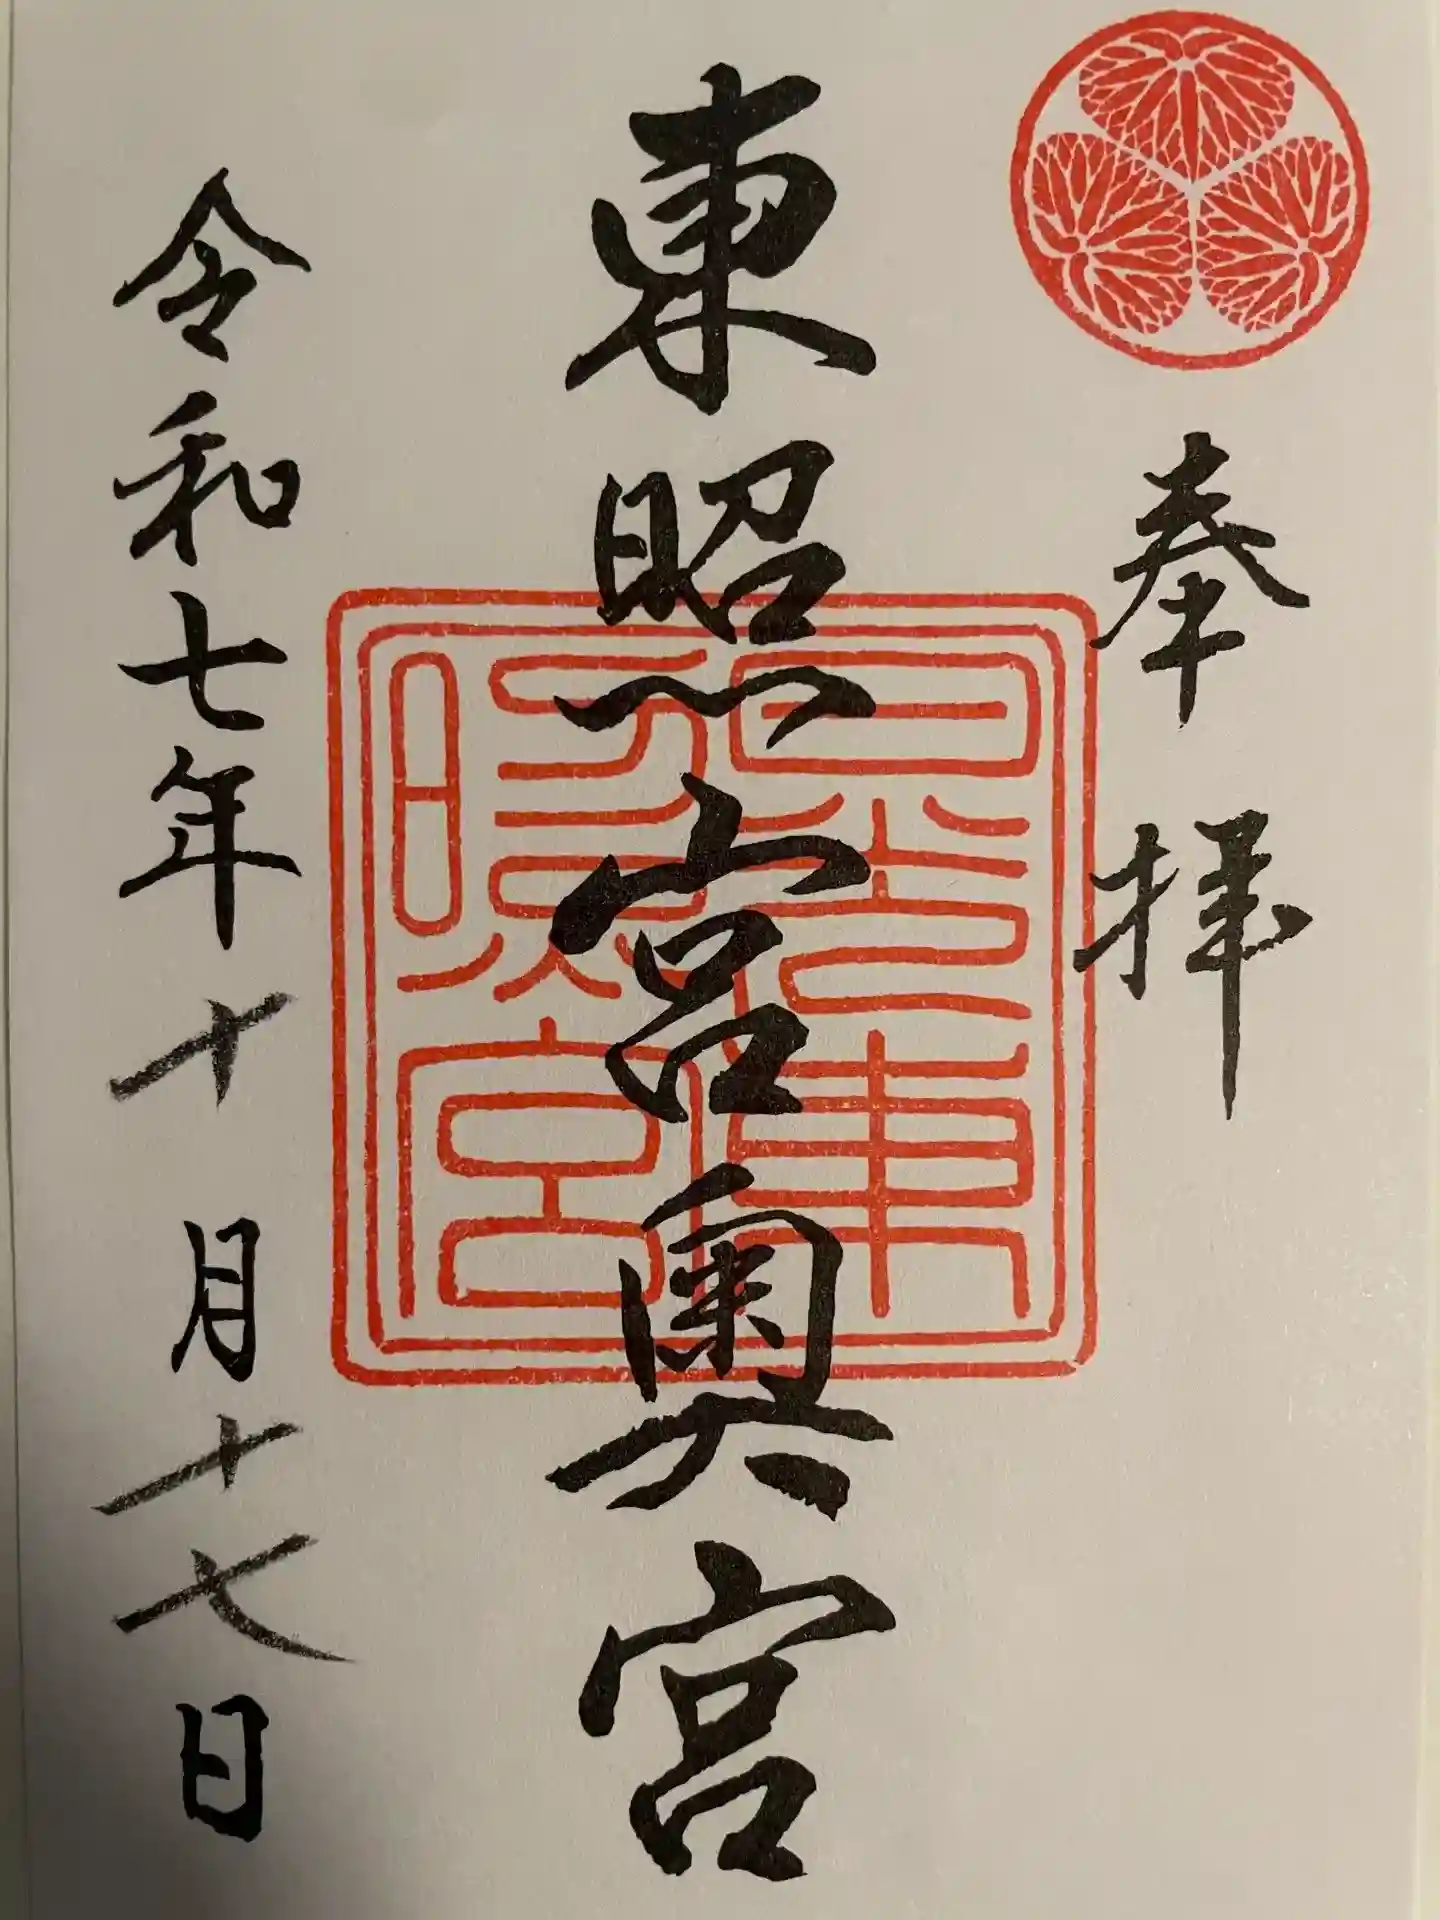 奉拝
東照宮奥宮
令和七年十月十七日